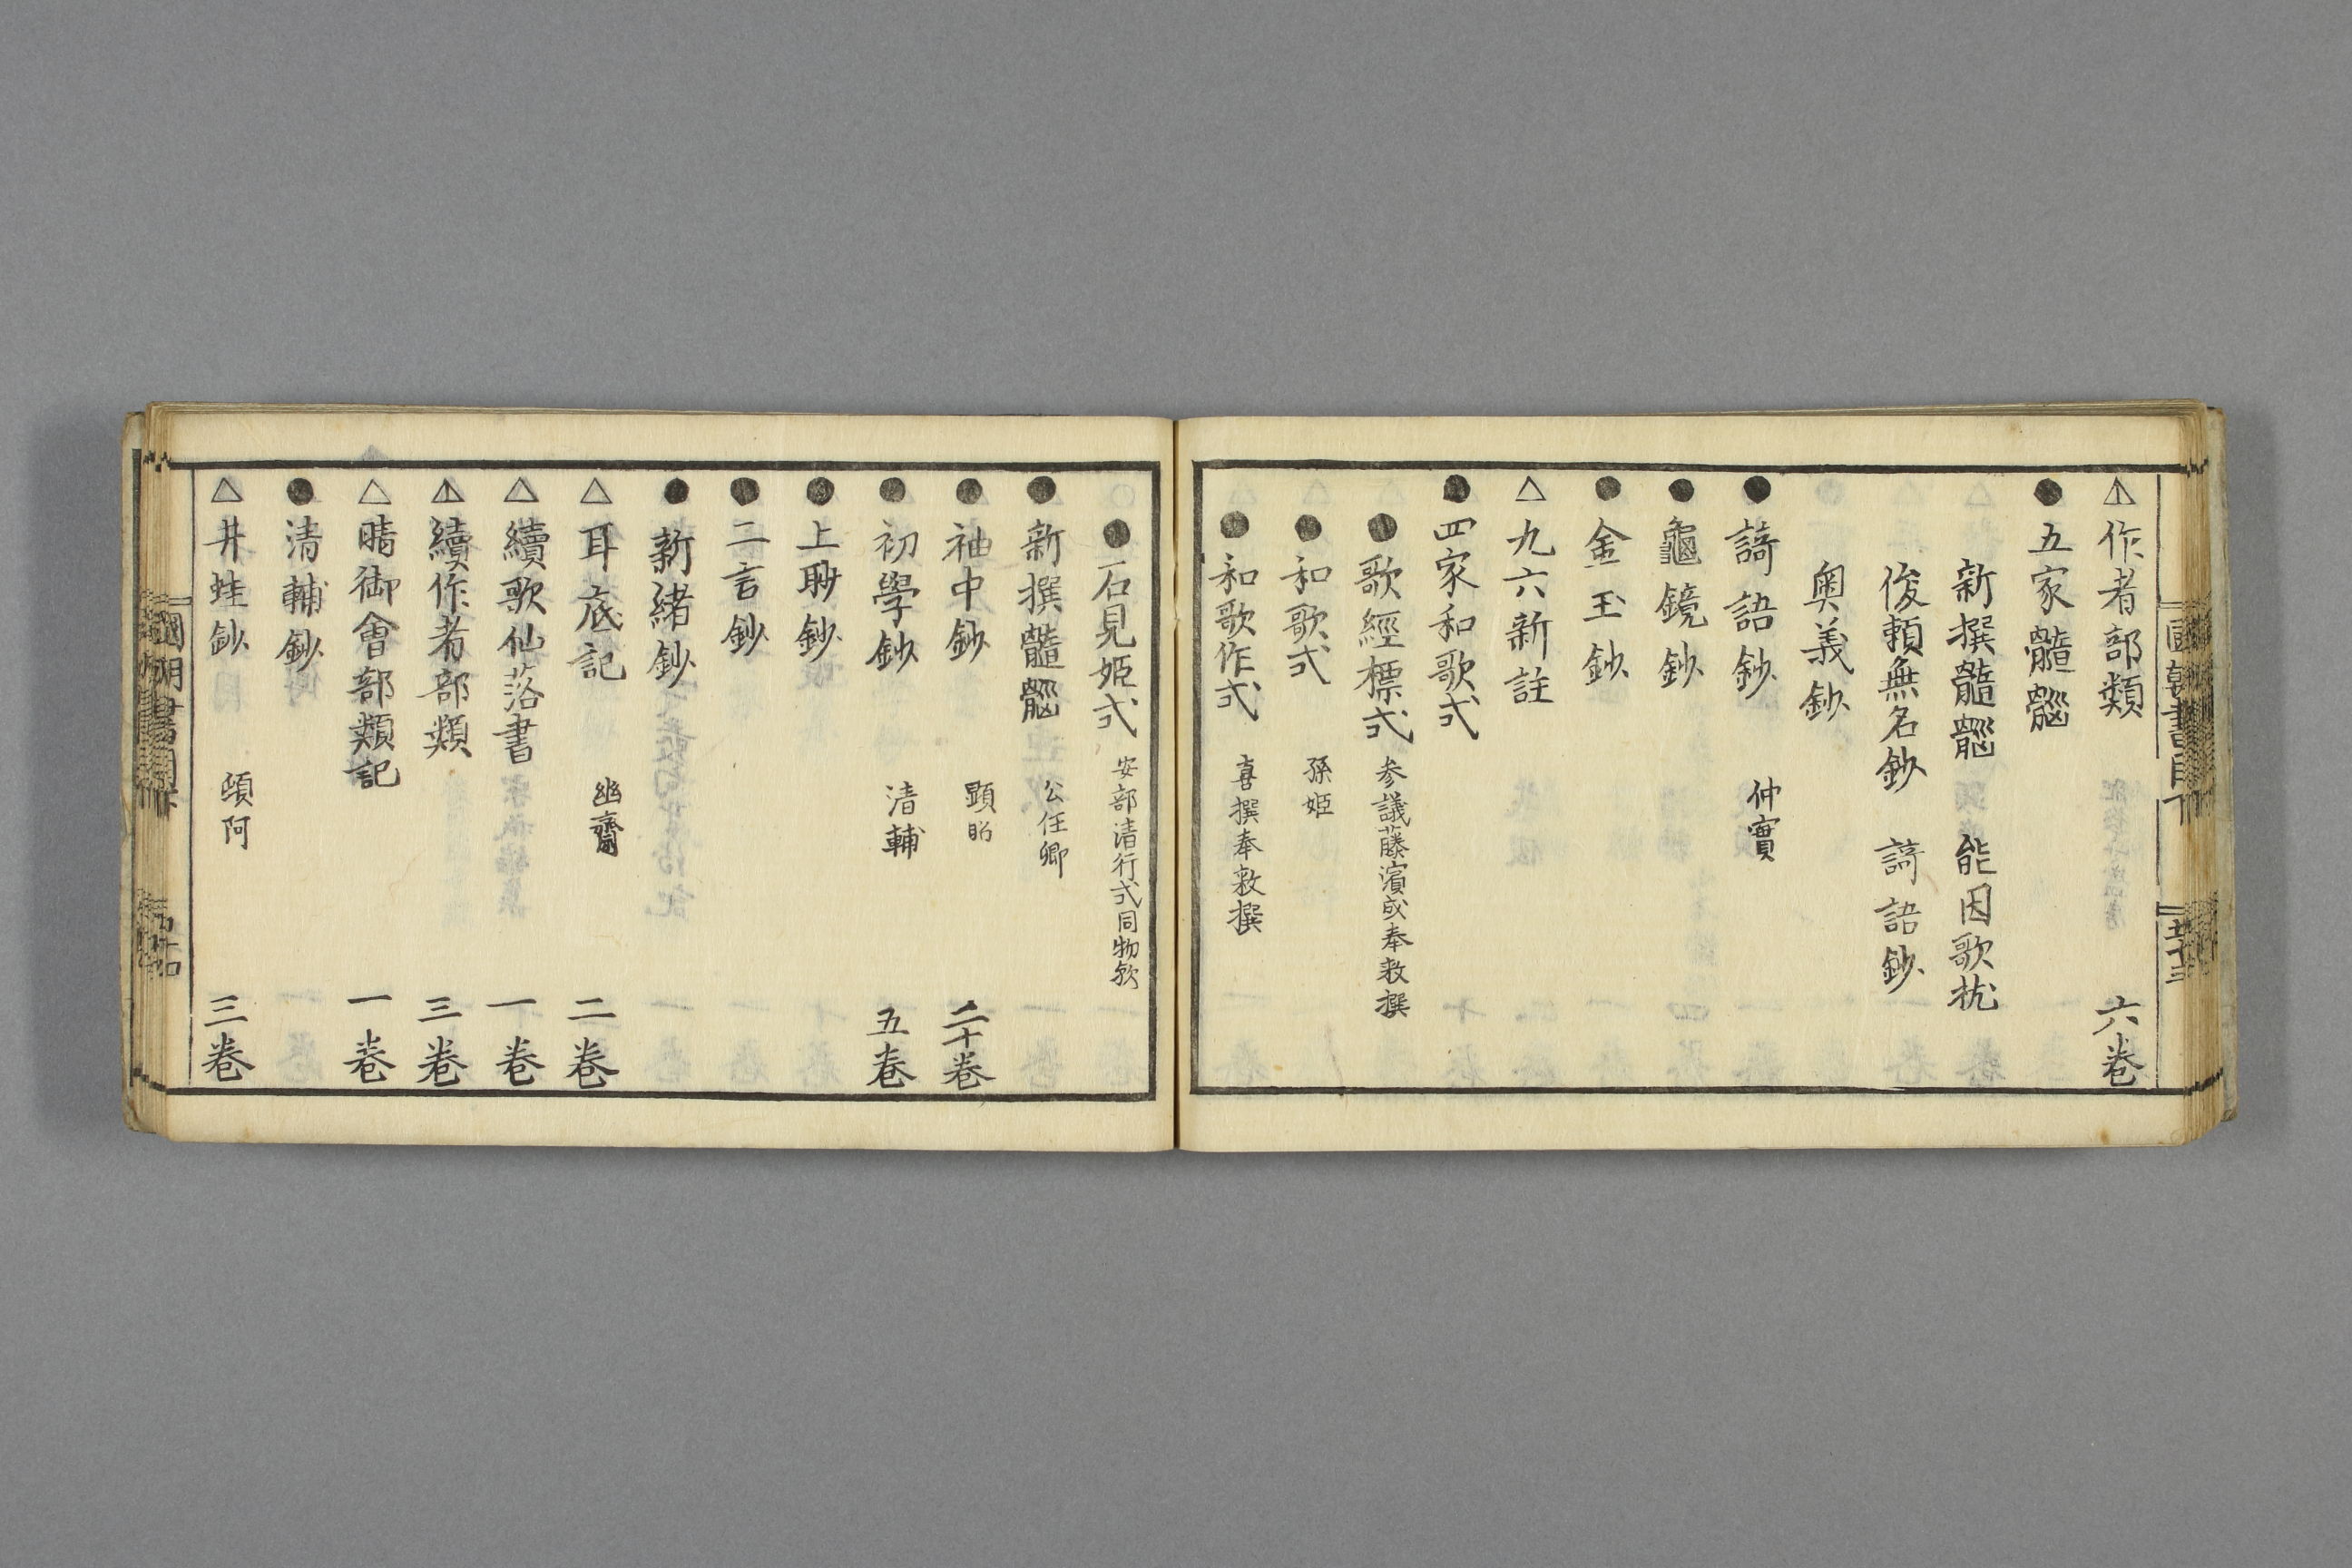 作者部類 六卷
●五家髓腦
新撰髓腦 能因歌枕
俊頼無名鈔 謌語鈔
奥義鈔
●謌語鈔 仲實
●龜鏡鈔
●金玉鈔
△九六新註
●四家和歌式
●歌經標式 参議藤濱成奉敕撰
●和歌式 孫姫
●和歌作式 喜撰奉敕撰
●石見姫式 安部清行式同物欤
●新撰髓腦 公任卿
●袖中鈔 顕昭 二十卷
●初學鈔 清輔 五卷
●上聊鈔
●二言鈔
●新緒鈔
△耳底記 幽齋 二卷
△續歌仙落書 一卷
續作者部類 三卷
△晴御會部類記 一卷
●清輔鈔
△井蛙鈔 頓阿 三卷